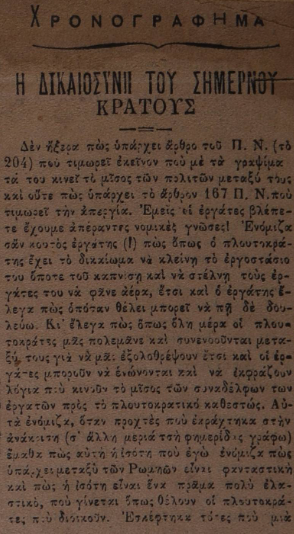 ΧΡΟΝΟΓΡΑΦΗΜΑ
Η ΔΙΚΑΙΟΣΥΝΗ ΤΟΥ ΣΗΜΕΡΝΟΥ
ΚΡΑΤΟΥΣ
Δὲν ἤξερα πὼς ὑπάρχει ἄρθρο τοῦ Π. Ν. (τὸ
204) ποὺ τιμωρεῖ ἐκεῖνον ποὺ μὲ τὰ γραψίμα
τά του κινεῖ τὸ μῖσος τῶν πολιτῶν μεταξύ τους
καὶ οὔτε πὼς ὑπάρχει τὸ ἄρθρον 167 Π. Ν. ποὺ
τιμωρεῖ τὴν ἀπεργία. Ἐμεῖς οἱ ἐργάτες βλέπε-
τε ἔχουμε ἀπέραντες νομικὲς γνῶσες! Ἐνόμιζα
σὰν κουτὸς ἐργάτης (!) πὼς ὅπως ὁ πλουτοκρά-
της ἔχει τὸ δικαίωμα νὰ κλείνῃ τὸ ἐργοστάσιο
του ὅποτε τοῦ καπνίσῃ καὶ νὰ στέλνῃ τοὺς ἐρ-
γάτες του νὰ φᾶνε ἀέρα, ἔτσι καὶ ὁ ἐργάτης ἔ-
λεγα πὼς ὁπόταν θέλει μπορεῖ νὰ πῇ δὲ δου-
λεύω. Κι' ἔλεγα πὼς ὅπως ὅλη μέρα οἱ πλου-
τοκράτες μᾶς πολεμᾶνε καὶ συνενοοῦνται μετα-
ξύ τους γιὰ νὰ μᾶς ἐξολοθρέψουν ἔτσι καὶ οἱ ἐρ-
γάτες μποροῦν νὰ ἑνώνονται καὶ νὰ ἐκφράζουν
λόγια ποὺ κινοῦν τὸ μῖσος τῶν συναδέλφων των
ἐργατῶν πρὸς τὸ πλουτοκρατικὸ καθεστώς. Αὐ-
τὰ ἐνόμιζα, ὅταν προχτὲς ποὺ ἐκράχτηκα στὴν
ἀνάκριση (σ' ἄλλη μεριὰ τσῆ φημερίδας γράφω)
ἔμαθα πὼς αὐτὴ ἡ ἰσότη ποὺ ἐγὼ ἐνόμιζα πὼς
ὑπάρχει μεταξὺ τῶν Ρωμηῶν εἶναι φανταστικὴ
καὶ πὼς ἡ ἰσότη εἶναι ἕνα πρᾶμα πολὺ ἐλα-
στικό, ποὺ γίνεται ὅπως θέλουν οἱ πλουτοκρά-
τες ποὺ διοικοῦν. Ἐσκέφτηκα τότες ποὺ μιὰ